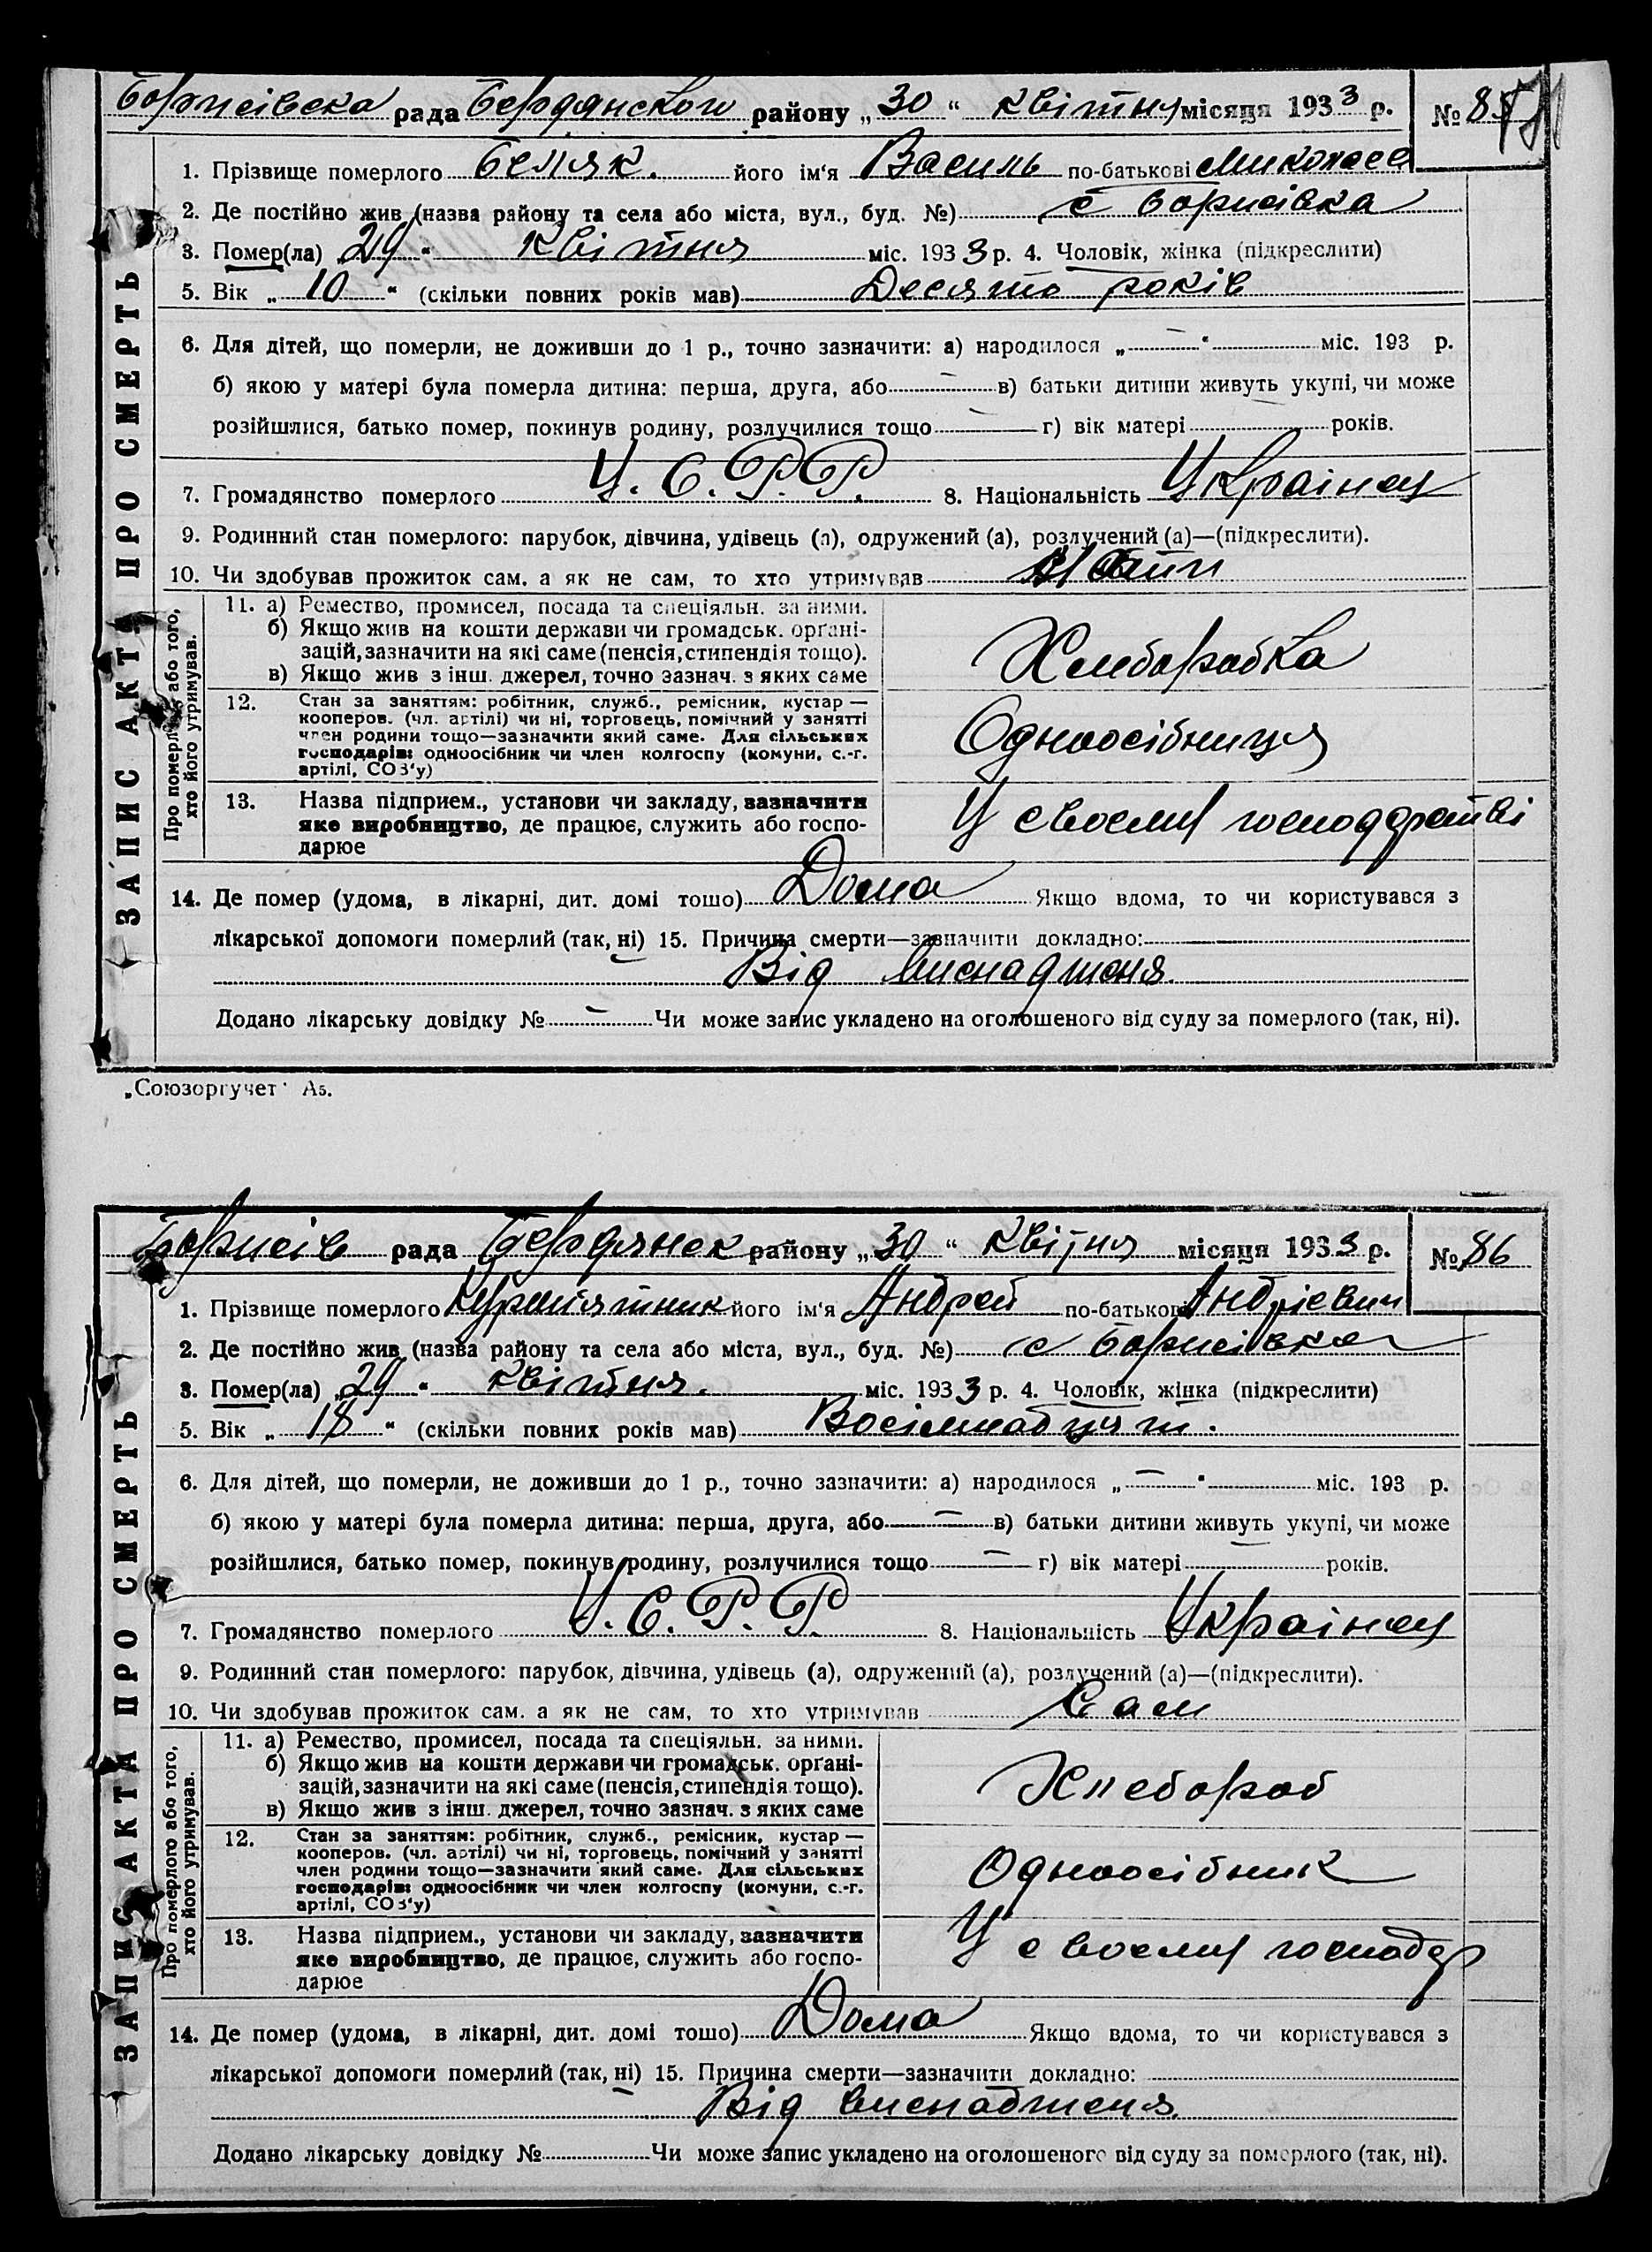 Борисівска рада Бердянского району „30“ квітня місяця 1933 р. № 85
1. Прізвище померлого Беляк. його ім‘я Василь по-батькові
2. Де постійно жив (назва району та села або міста, вул., буд. №) с Борисівка
3. Помер(ла) „29“ квітня міс. 1933 р. 4. Чоловік, жінка (підкреслити)
5. Вік „10“ (скільки повних років мав) Десять років
6. Для дітей, що померли, не доживши до 1 р., точно зазначити: а) народилося „—“ міс. 193 р.
б) якою у матері була померла дитина: перша, друга, або — в) батьки дитини живуть укупі, чи може
розійшлися, батько помер, покинув родину, розлучилися тощо — г) вік матері років.
7. Громадянство померлого У.С.Р.Р. 8. Національність Украінец
9. Родинний стан померлого: парубок, дівчина, удівець (а), одружений (а), розлучений (а)—(підкреслити).
10. Чи здобував прожиток сам, а як не сам, то хто утримував
ЗАПИС АКТА ПРО СМЕРТЬ
Про померлого або того,
хто його утримував.
11. а) Ремество, промисел, посада та спеціяльн. за ними.
б) Якщо жив на кошти держави чи громадськ. орґані-
зацій, зазначити на які саме (пенсія, стипендія тощо).
в) Якщо жив з інш. джерел, точно зазнач. з яких саме
Хлеборобка
12. Стан за заняттям: робітник, служб., ремісник, кустар —
кооперов. (чл. артілі) чи ні, торговець, помічний у занятті
член родини тощо—зазначити який саме. Для сільських
господарів: одноосібник чи член колгоспу (комуни, с.-г.
артілі, СОЗ‘у)
Одноосібниця
13. Назва підприєм., установи чи закладу, зазначити
яке виробництво, де працює, служить або госпо-
дарює
У своему господрстві
14. Де помер (удома, в лікарні, дит. домі тошо) Дома Якщо вдома, то чи користувався з
лікарської допомоги померлий (так, ні) 15. Причина смерти—зазначити докладно:
Від виснадженя.
Додано лікарську довідку № — Чи може запис укладено на оголошеного від суду за померлого (так, ні).
„Союзоргучет‘ А5.
Борисів рада Бердянск району „30“ Квітня місяця 1933 р. № 86
1. Прізвище померлого його ім‘я Андрей по-батькові Андріевич
2. Де постійно жив (назва району та села або міста, вул., буд. №) с Борисівка
3. Помер(ла) „29“ квітня. міс. 1933 р. 4. Чоловік, жінка (підкреслити)
5. Вік „18“ (скільки повних років мав) Восімнадцять.
6. Для дітей, що померли, не доживши до 1 р., точно зазначити: а) народилося „—“ міс. 193 р.
б) якою у матері була померла дитина: перша, друга, або — в) батьки дитини живуть укупі, чи може
розійшлися, батько помер, покинув родину, розлучилися тощо — г) вік матері років.
7. Громадянство померлого У.С.Р.Р. 8. Національність Украінец
9. Родинний стан померлого: парубок, дівчина, удівець (а), одружений (а), розлучений (а)—(підкреслити).
10. Чи здобував прожиток сам, а як не сам, то хто утримував Сам
ЗАПИС АКТА ПРО СМЕРТЬ
Про померлого або того,
хто його утримував.
11. а) Ремество, промисел, посада та спеціяльн. за ними.
б) Якщо жив на кошти держави чи громадськ. орґані-
зацій, зазначити на які саме (пенсія, стипендія тощо).
в) Якщо жив з інш. джерел, точно зазнач. з яких саме
Хлебороб
12. Стан за заняттям: робітник, служб., ремісник, кустар —
кооперов. (чл. артілі) чи ні, торговець, помічний у занятті
член родини тощо—зазначити який саме. Для сільських
господарів: одноосібник чи член колгоспу (комуни, с.-г.
артілі, СОЗ‘у)
Одноосібник
13. Назва підприєм., установи чи закладу, зазначити
яке виробництво, де працює, служить або госпо-
дарює
У своему господр
14. Де помер (удома, в лікарні, дит. домі тошо) Дома Якщо вдома, то чи користувався з
лікарської допомоги померлий (так, ні) 15. Причина смерти—зазначити докладно:
Від виснадженя.
Додано лікарську довідку № Чи може запис укладено на оголошеного від суду за померлого (так, ні).